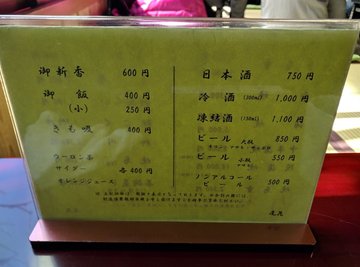 御新香 600円
御飯 400円
(小) 250円
きも吸 400円
ウーロン茶
サイダー 各400円
オレンジジュース
日本酒 750円
冷酒 (300ml) 1,000円
凍結酒 (150ml) 1,100円
ビール 大瓶 850円
ビール 小瓶 550円
ノンアルコール
ビール 500円